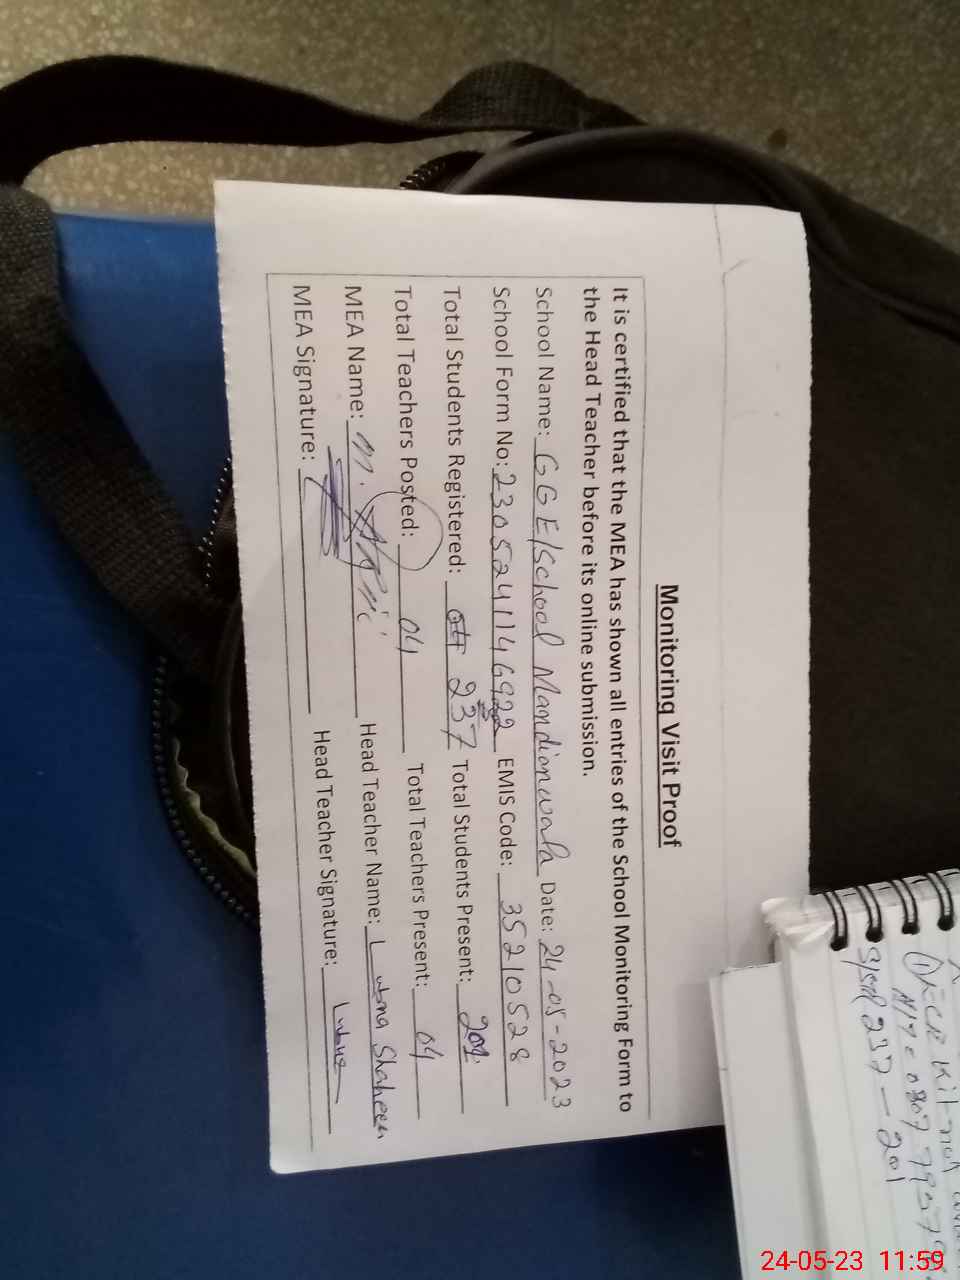 Monitoring Visit Proof
It is certified that the MEA has shown all entries of the School Monitoring Form to
the Head Teacher before its online submission.
School Name: GGE/School Mandianwala Date: 24-05-2023
School Form No: 23052411146922 EMIS Code: 35210528
Total Students Registered: 237 Total Students Present: 201
Total Teachers Posted: 04 Total Teachers Present: 04
MEA Name: M. Head Teacher Name: Lubna Shaheen
MEA Signature: Head Teacher Signature: Lubna
237 - 201
24-05-23 11:59